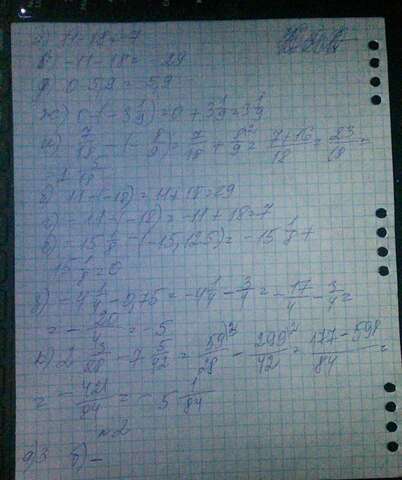 а) 11-18=-7
в) -11-18=-29
д) 0-5,9=-5,9
ж) 0-(-3 1/9)=0+3 1/9=3 1/9
и) 7/18-(-8/9)=7/18+8/9=7+16/18=23/18=
=1 5/18
б) 11-(-18)=11+18=29
г) -11-(-18)=-11+18=7
-15 1/8-(-15,125)=-15 1/8+
15 1/8=0
-4 1/4-0,75=-4 1/4-3/4=-17/4-3/4=
=-20/4=-5
к) 2 3/28-7 5/42=59/28-299/42=177-598/84=
=-421/84=-5 1/84
№2
б) -